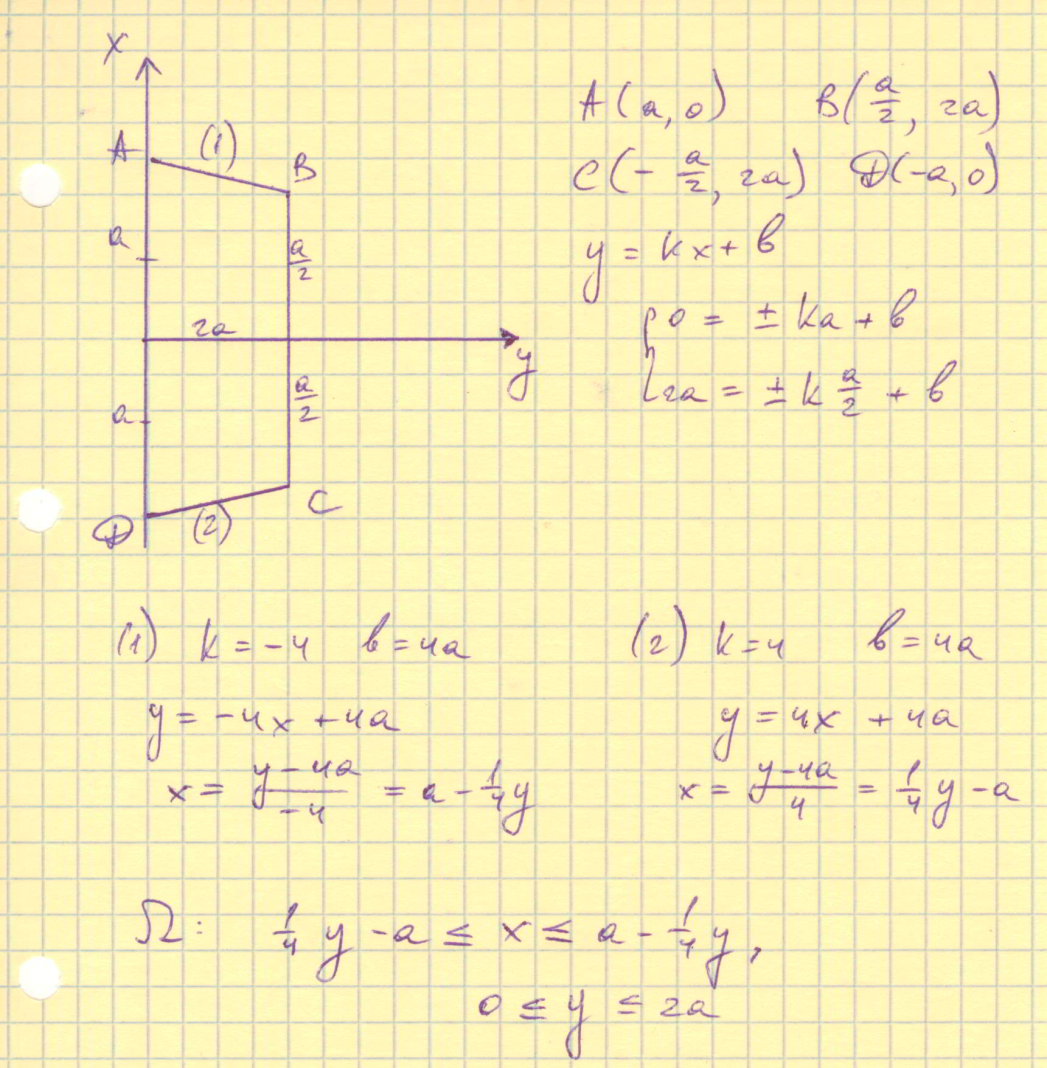 x
A (1) B
a a/2
2a
y
a a/2
D (2) C
A(a, 0) B(a/2, 2a)
C(-a/2, 2a) D(-a, 0)
y = kx + b
{ 0 = ± ka + b
2a = ± k a/2 + b
(1) k = -4 b = 4a (2) k = 4 b = 4a
y = -4x + 4a y = 4x + 4a
x = (y - 4a)/(-4) = a - 1/4 y x = (y - 4a)/4 = 1/4 y - a
Ω: 1/4 y - a ≤ x ≤ a - 1/4 y,
0 ≤ y ≤ 2a